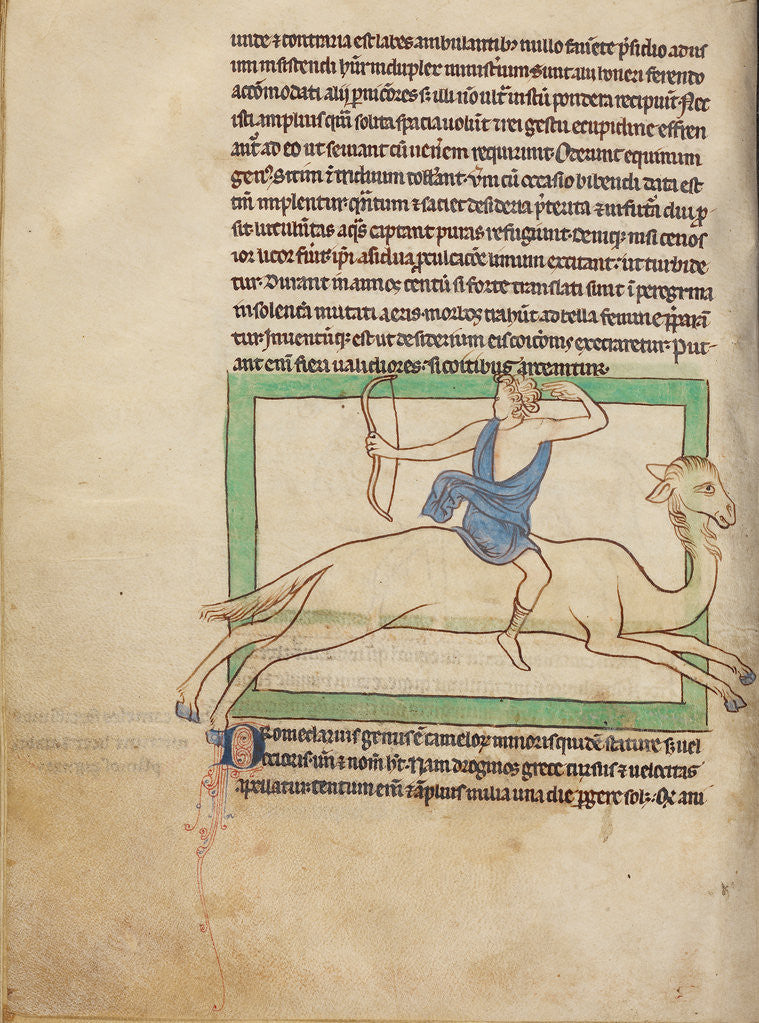 unde ⁊ contraria est labes ambulantibꝫ nullo fauēte p̄sidio ad us
um insistendi hn̄t induplex ministium Sunt alii honeri ferendo
accōmodati alij ꝑnicōres sꝫ illi nō ult̄ iustū pondera recipiūt Nec
isti amplius qm̄ solita spacia uolūt ⁊ rei gestū cupidine effren
ant̄ adeo ut seuiant cū uenerem requirunt Oderunt equinum
genꝰ Sitim ī triduum tollant Vm̄ cū occasio bibendi data est
tm̄ implentur qn̄tum ⁊ saciet desideria p̄terita ⁊ in futm̄ diu ꝓ
sit lutulentas aqͣs captant puras refugiunt Deniqꝫ nisi cenos
ior liquor fuit ip̄i asidua ꝓculcacōe limum excitant ut turbide
tur Durant in annos centū si forte translati sint ī peregrina
insolencia mutati aeris morbos trahūt ad bella femine p̄parāt
tur Inuentūqꝫ est ut desiderium eis execraretur Put-
ant enī fieri ualidiores si coitibus arceantur
Dromedarius genus ē camelorꝫ minoris quidē stature sꝫ uel
ocioris un̄ ⁊ nomē ht̄ Nam dromos grece cursus ⁊ uelocitas
apellatur centum enī ⁊ āplius milia una die ꝑgere solꝫ Qꝫ ani